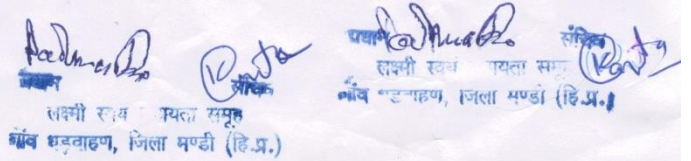 प्रधान सचिव
लक्ष्मी स्वयं सहायता समूह
गाँव धडवाहण, जिला मण्डी (हि.प्र.)
प्रधान सचिव
लक्ष्मी स्वयं सहायता समूह
गाँव धडवाहण, जिला मण्डी (हि.प्र.)